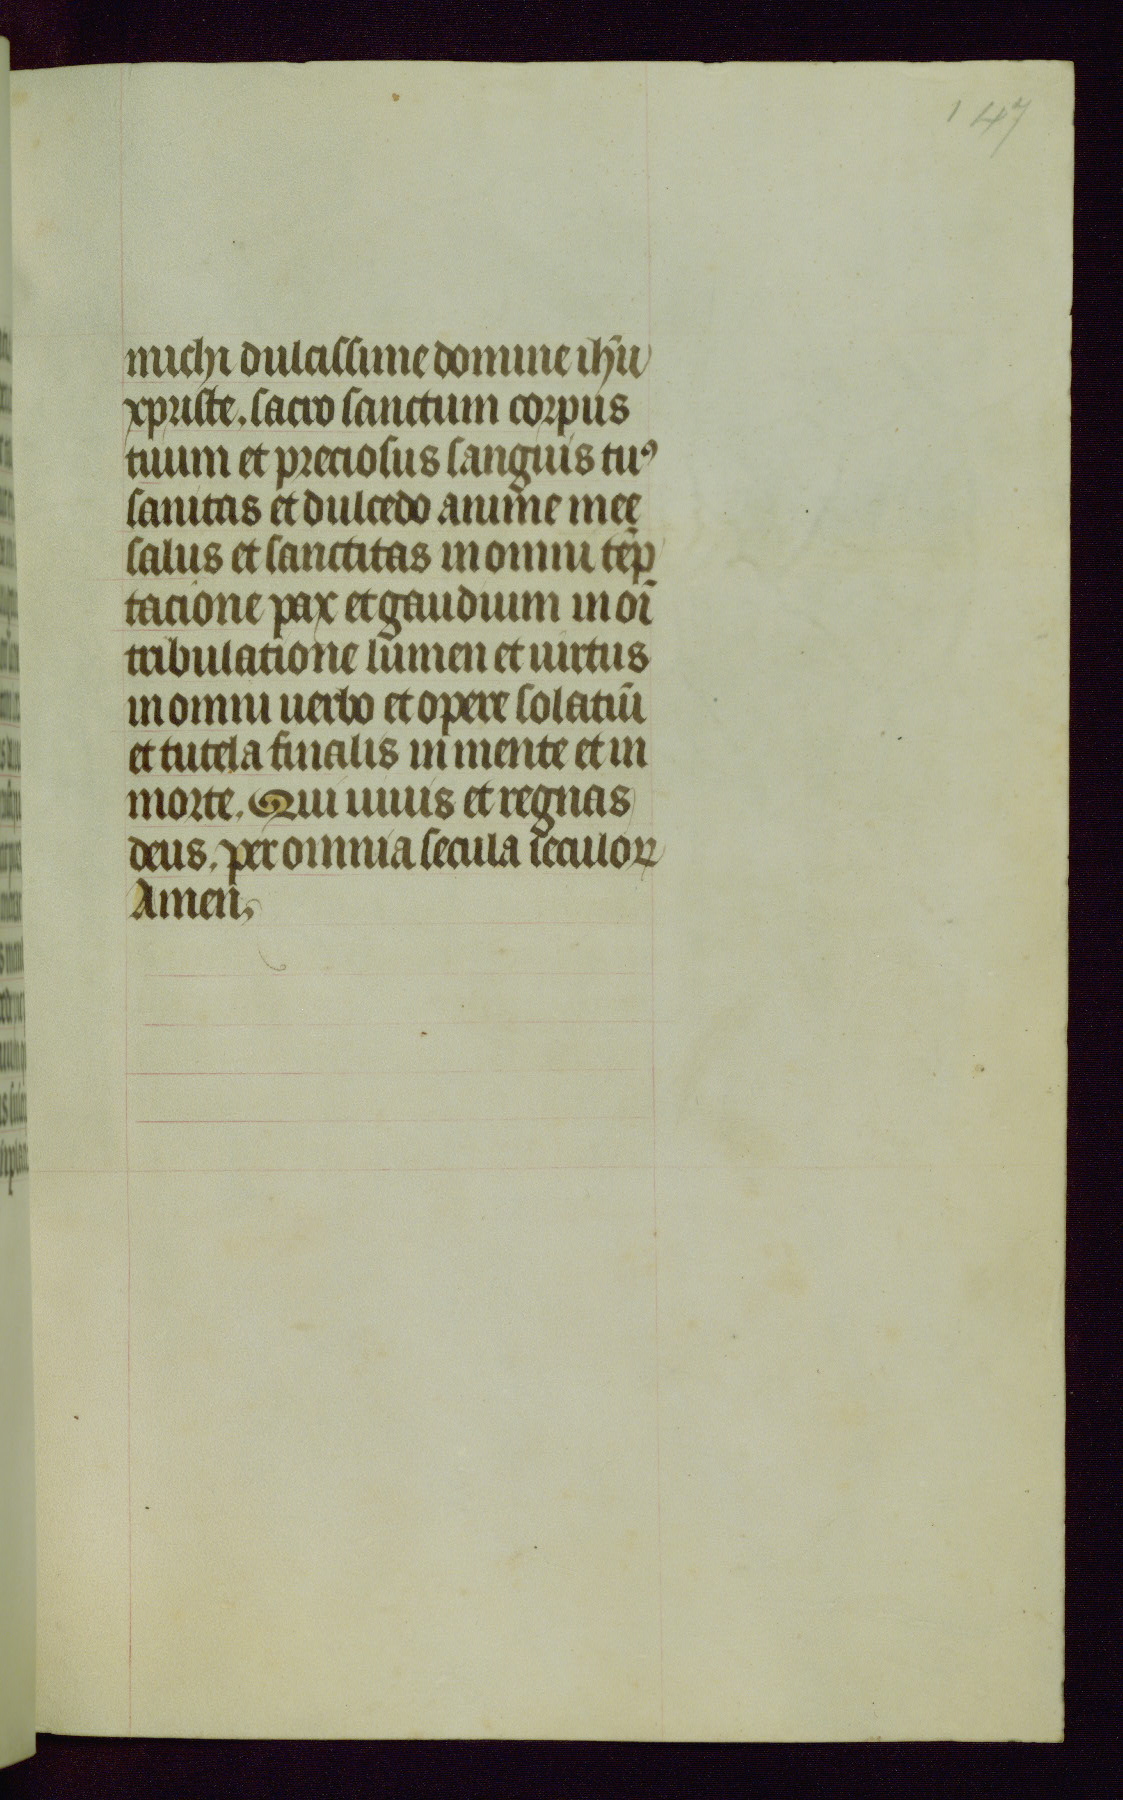 147
michi dulcissime domine ihu̅
xpriste. sacro sanctum corpus
tuum et preciosus sanguis tuꝰ
sanitas et dulcedo anime mee
salus et sanctitas in omni te̅p
tacione pax et gaudium in oi̅
tribulatione lumen et uirtus
in omni uerbo et opere solatiu̅
et tutela finalis in mente et in
morte. Qui uiuis et regnas
deus. per omnia secula seculoꝝ
Amen.